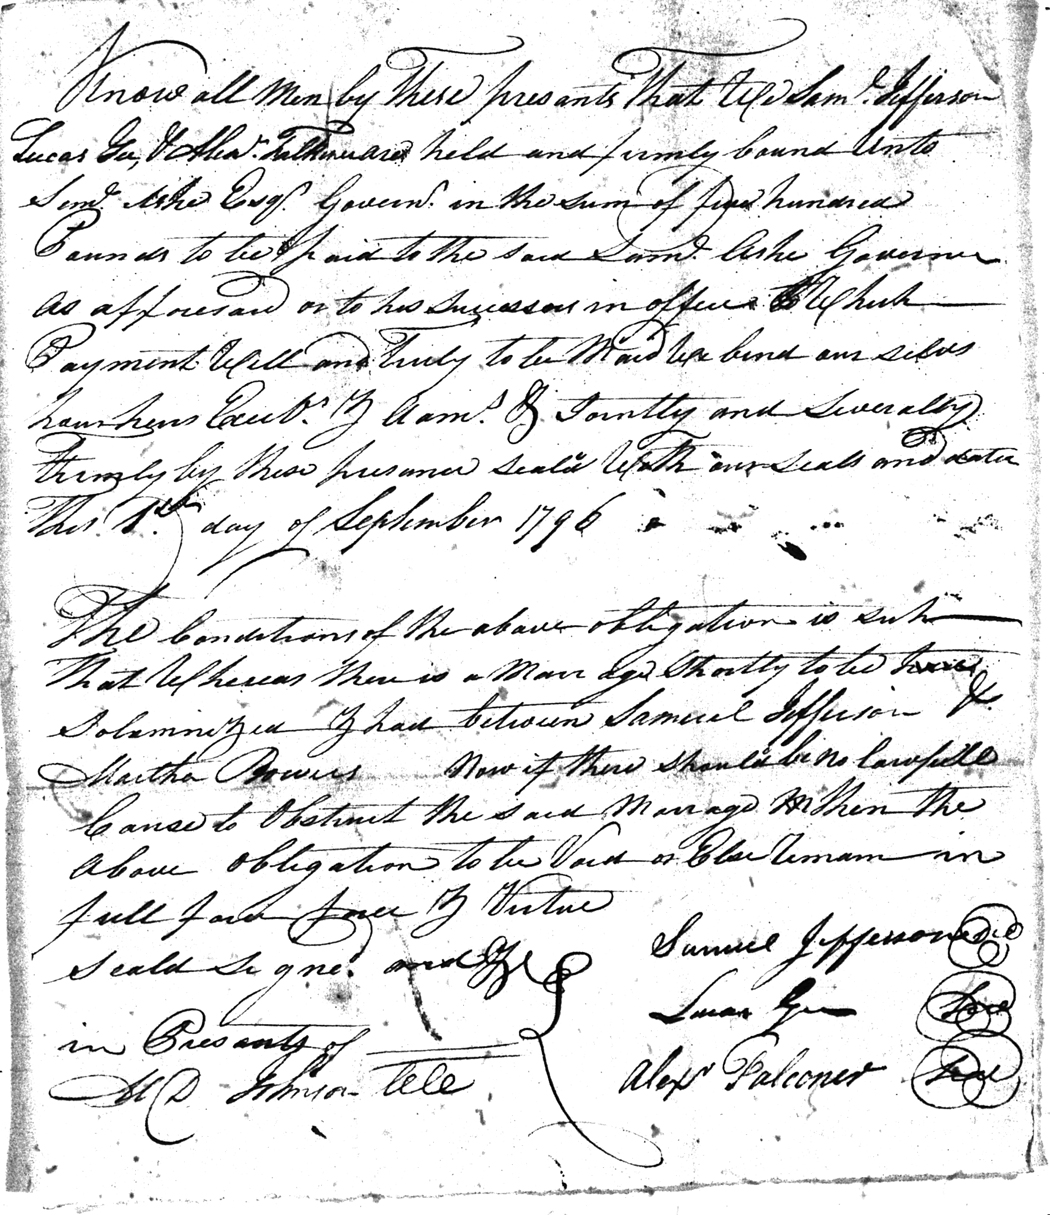 Know all Men by These presants That We Sam.l Jefferson
Lucas Gee, & Alexr. held and firmly bound Unto
Saml. Ashe Esqr. Governr. in the sum of five hundred
Pounds to be paid to the said Saml. Ashe Governer
as afforesaid or to his Sucessors in office to Which
Payment Will and Truly to be Maid We bend our selvs
our hers Exects. & Adms. & Jointly and Severally
firmly by these presance seald With our seals and dated
This 1st. day of September 1796
The Conditions of the above obligation is such
That Whereas there is a Marrage Shortly to be
Solamnized & had between Samuel Jefferson &
Martha Bowers Now if there should be no lawfull
Cause to Obstruct the said Marrage then the
above obligation to be Void or Else remain in
full force & Virtue
Seald Signed. and
in Presants of
M D Johnson CCC
Samuel Jefferson Seal
Lucas Gee Seal
Alexr Falconer Seal